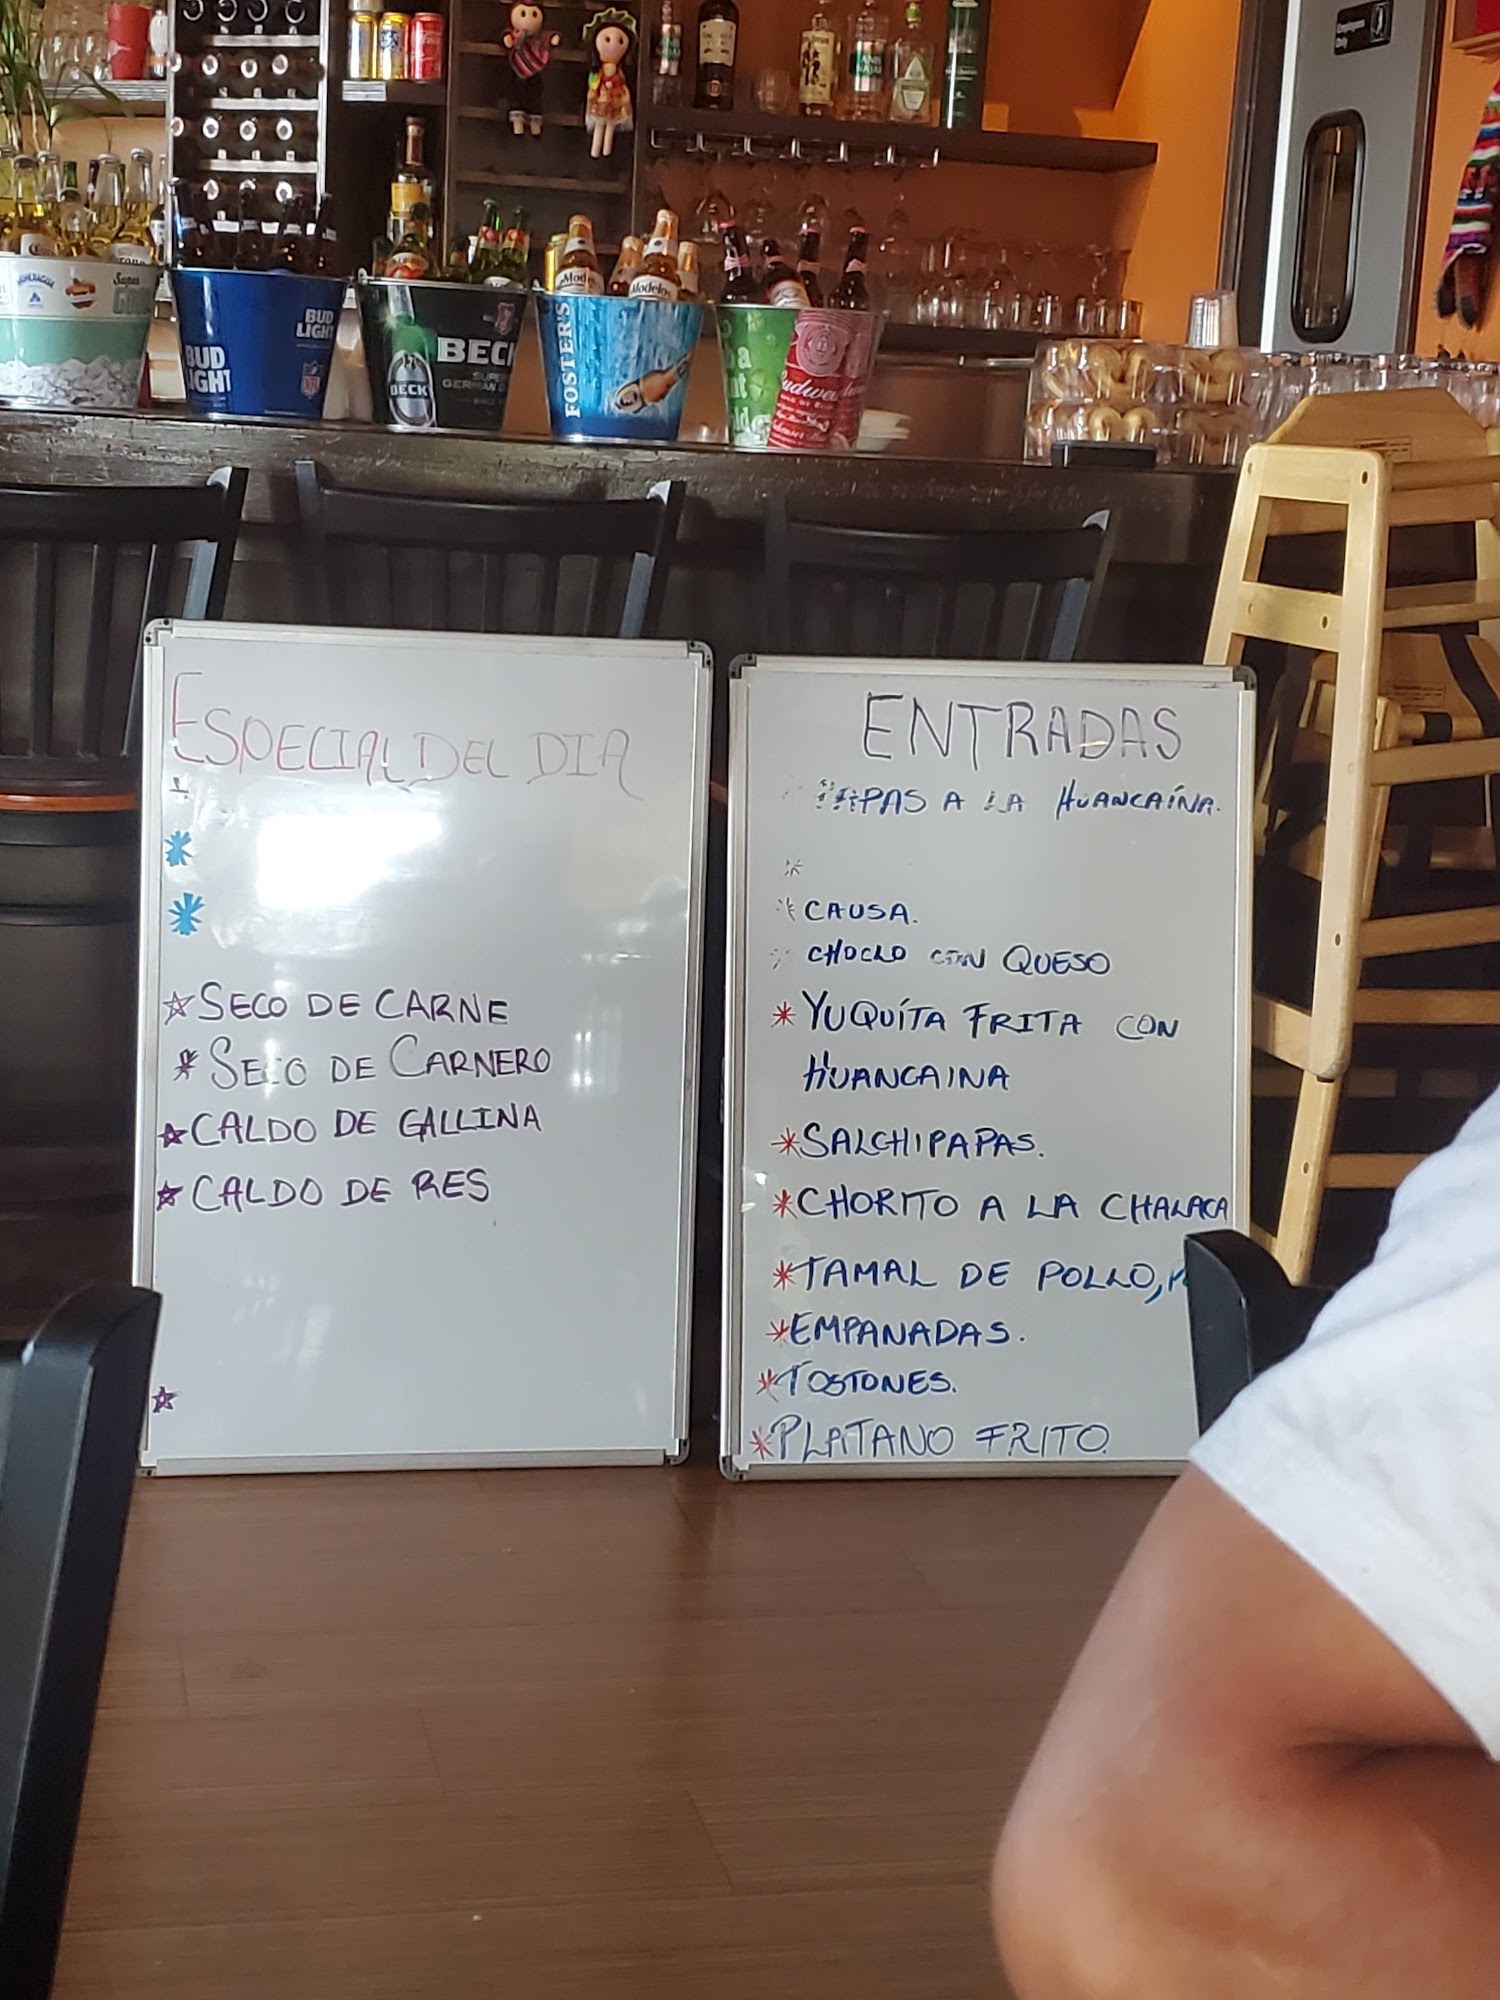 Employees
Only
BUD
LIGHT
BUD
LIGHT
BECK
BECK
GERMAN
FOSTER'S
Modelo
Budweiser
ESPECIAL DEL DIA
SECO DE CARNE
SECO DE CARNERO
CALDO DE GALLINA
CALDO DE RES
ENTRADAS
A LA HUANCAÍNA.
CAUSA.
CHOCLO CON QUESO
YUQUÍTA FRITA CON
HUANCAINA
SALCHIPAPAS.
CHORITO A LA CHALACA
TAMAL DE POLLO,
EMPANADAS.
TOSTONES.
PLATANO FRITO